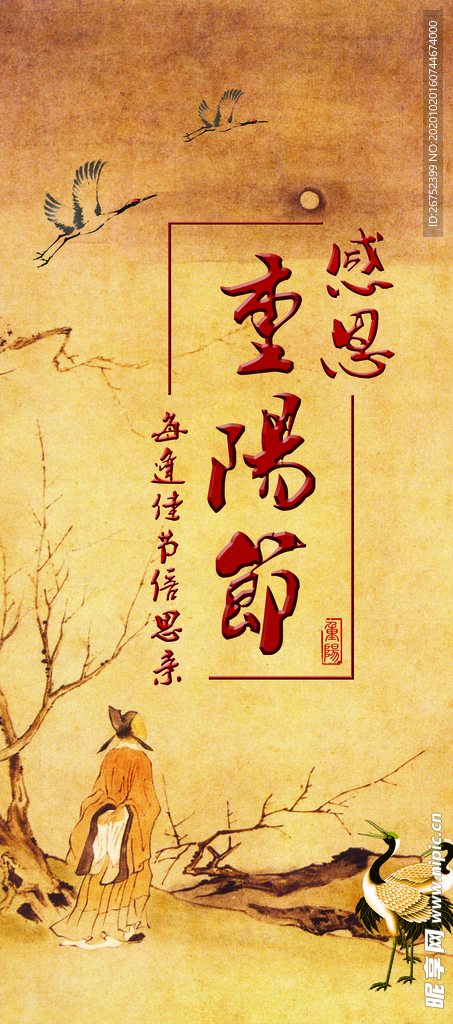 感恩
重陽節
每逢佳节倍思亲
重陽
ID:26752399 NO:20201020160744674000
昵享网 www.nipic.cn